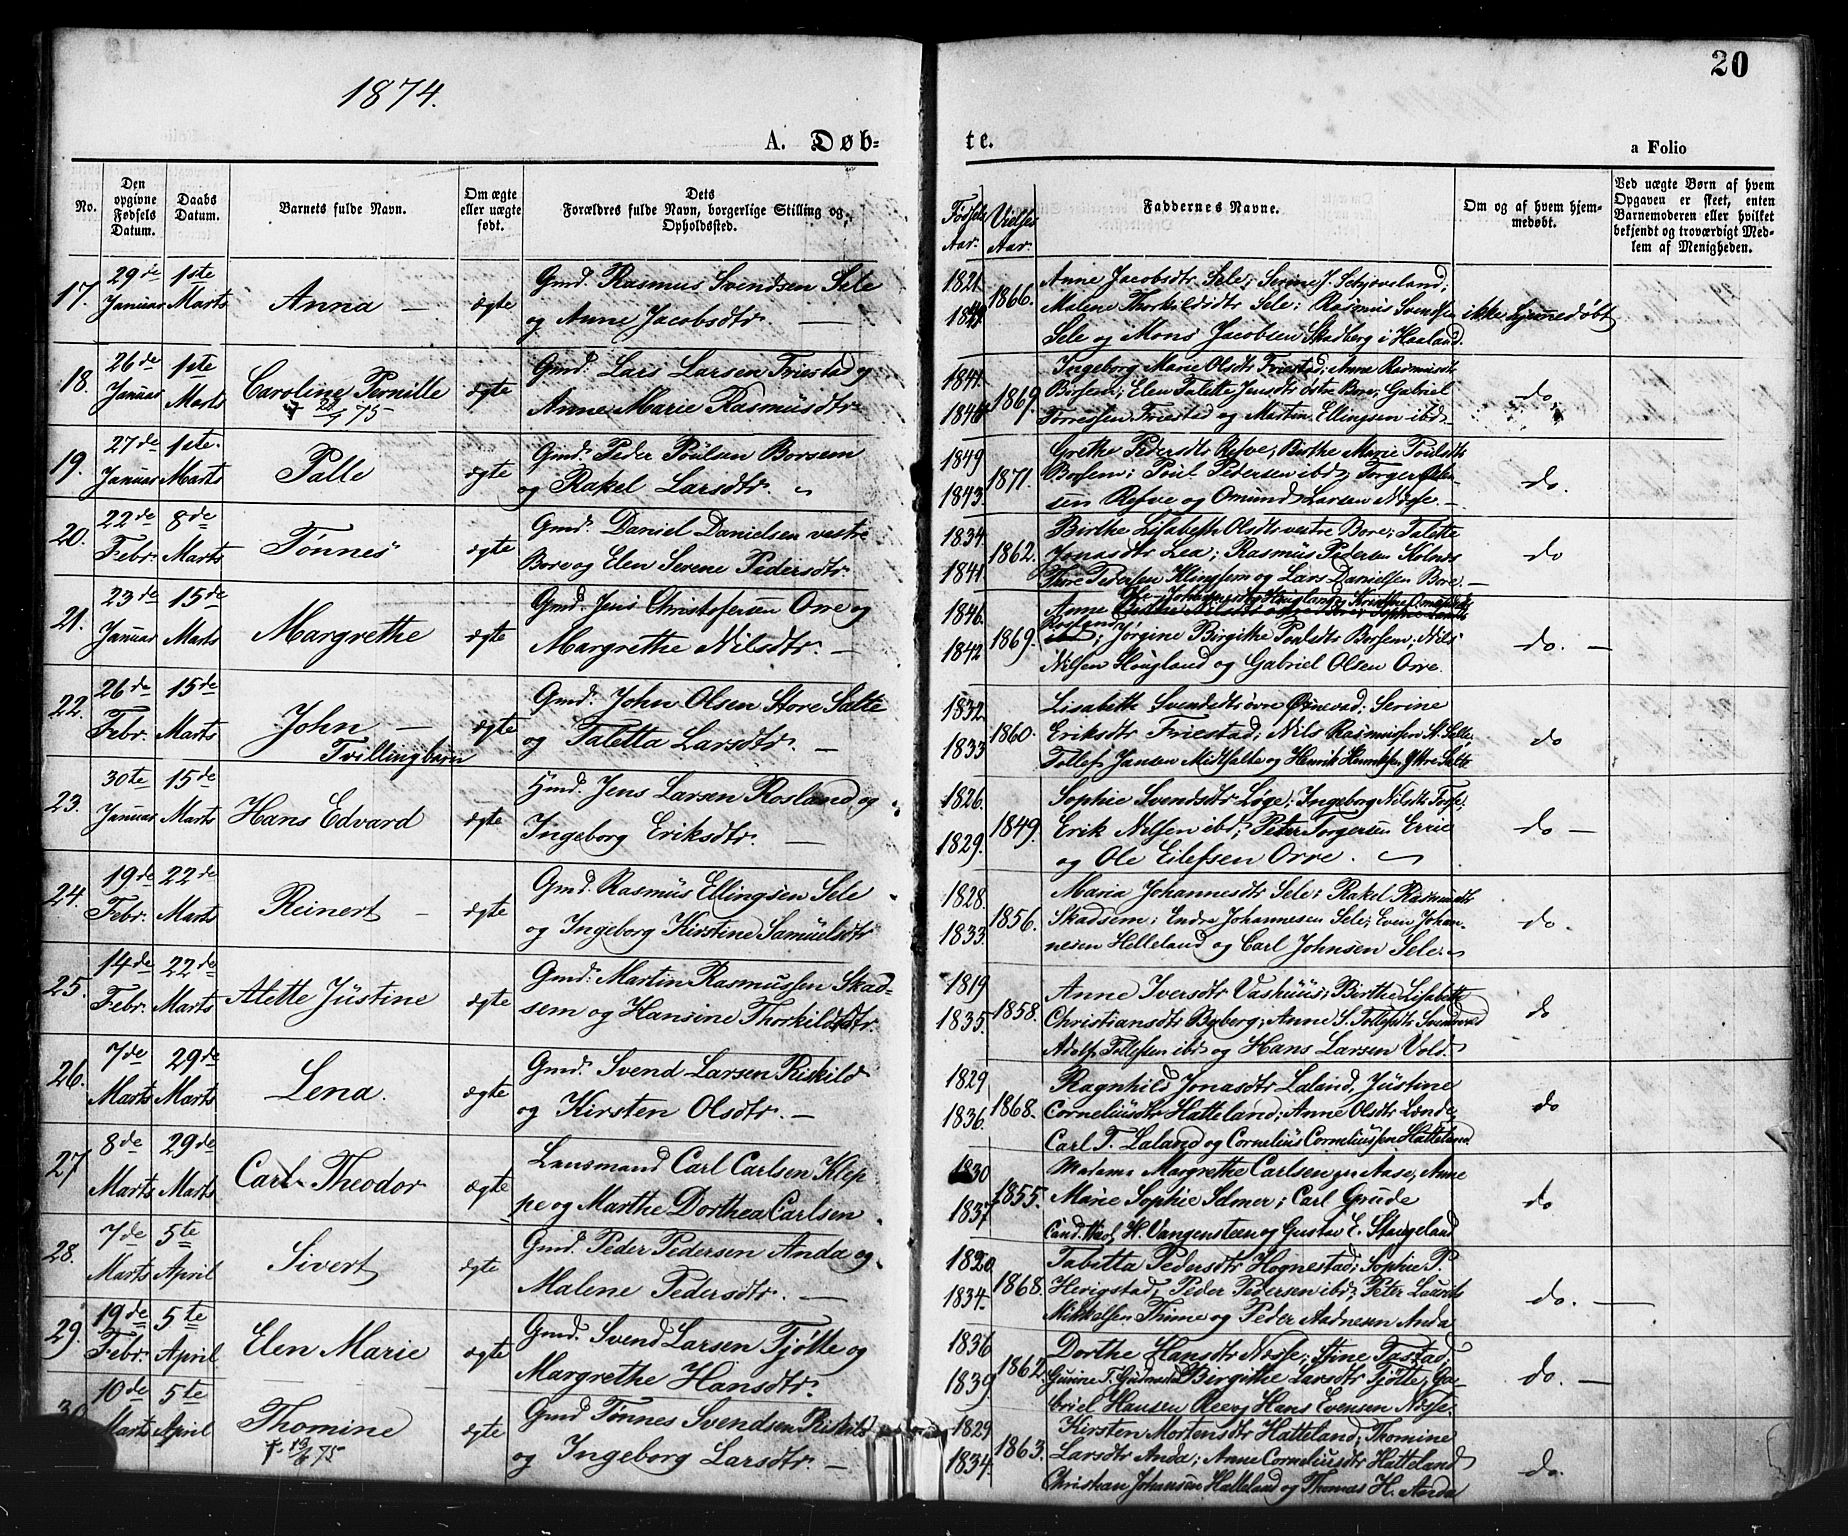 1874.
20
A. Døb-
te.
a Folio
No.
Den opgivne Fødsels Datum.
Daabs Datum.
Barnets fulde Navn.
Om ægte eller uægte født.
Dets Forældres fulde Navn, borgerlige Stilling og Opholdssted.
Fødsels Aar.
Vielses Aar.
Faddernes Navne.
Om og af hvem hjem-
medøbt.
Ved uægte Børn af hvem
Opgaven er skeet, enten
Barnemoderen eller hvilket
bekjendt og troværdigt Med-
lem af Menigheden.
17. 29de Januar 1ste Marts Anna — ægte
Gmd. Rasmus Svendsen Sele
og Anne Jacobsdtr. —
1821. 1866.
Anne Jacobsdtr Sele; Serine J. Schjæveland;
Malene Thorkildsdtr Sele; Rasmus Svendsen
Sele og Mons Jacobsen Skadberg i Haaland.
ikke hjemmedøbt
18. 26de Januar 1ste Marts Caroline Pernille ægte
Gmd. Lars Larsen Friestad og
Anne Marie Rasmusdtr.
1841. 1846 1869.
Ingeborg Marie Olsdtr Friestad; Anne Rasmusdtr
Borsem; Elen Talette Jensdtr østre Bore; Gabriel
Torressen Friestad og Martin Ellingsen ibd.
do
19. 27de Januar 1ste. Marts Palle ægte
Gmd. Peder Poulsen Borsem
og Rakel Larsdtr.
1849 1843. 1871.
Grethe Pedersdtr Refve; Birthe Marie Poulsdtr
Borsem; Poul Pedersen ibd; Torger Ol-
sen Refve og Omund Larsen Næse. —
do.
20. 22de Febr. 8de Marts Tønnes ægte
Gmd. Daniel Danielsen vestre
Bore og Elen Serene Pedersdtr.
1834. 1841. 1862.
Birthe Lisabeth Olsdtr vestre Bore; Talette
Jonasdtr Lea; Rasmus Pedersen Kolnes
Thore Pedersen Klingsem og Lars Danielsen Bore. —
do
21. 23de Januar 15de Marts Margrethe ægte
Gmd. Jens Christofersen Orre og
Margrethe Nilsdtr. —
1846. 1842 1869.
Anne
ibd; Jørgine Birgithe Paalsdtr Borsem; Nils
Nilsen Haugland og Gabriel Olsen Orre.
do. —
22. 26de Febr. 15de Marts John — ægte
Tvillingbarn
Gmd. John Olsen Store Salte
og Taletta Larsdtr. —
1832. 1833 1860.
Lisabeth Svendsdtr øvre Øxnevad; Serine
Eriksdtr Friestad; Nils Rasmussen St. Salte,
Tollef Jansen Midtsalte og Henrik Henriksen Yttre Salte
do
23. 30te Januar 15de Marts Hans Edvard ægte
Hmd. Jens Larsen Rosland og
Ingeborg Eriksdtr. —
1826. 1829. 1849.
Sophie Svendsdtr Løge; Ingeborg Nilsdtr Torse;
Erik Nilsen ibd; Peter Torgersen Erve
og Ole Eilefsen Orre.
do —
24. 19de Febr. 22de Marts Reinert — ægte
Gmd. Rasmus Ellingsen Sele
og Ingeborg Kirstine Samuelsdtr
1828. 1833. 1856.
Maria Johannesdtr Sele; Rakel Rasmusdtr
Skadsem; Endre Johannesen Sele; Even Johan-
nesen Helleland og Carl Johnsen Sele.
do.
25. 14de Febr. 22de Marts Alette Justine ægte
Gmd. Martin Rasmussen Skad-
sem og Hansine Thorkildsdtr.
1819 1835. 1858.
Anne Iversdtr Vashuus; Birthe Lisabeth
Christiansdtr Byberg; Anne S. Tollefsdtr
Adolf Tollefsen ibd og Hans Larsen Vold.
do
26. 7de Marts 29de Marts Lena. ægte
Gmd. Svend Larsen Riskild
og Kirsten Olsdtr. —
1829 1836. 1868.
Ragnhild Jonasdtr Laland, Justine
Corneliusdtr Hatteland; Anne Olsdtr Lende,
Carl T. Laland og Cornelius Corneliussen Hatteland.
do
27 8de Marts 29de Marts Carl Theodor ægte
Lensmand Carl Carlsen Klep
pe og Marthe Dorthea Carlsen
1830 1837 1855.
Madame Margrethe Carlsen Aase, Anne
Marie Sophie Selmer; Carl Grude
Cand. H. Vangensteen og Gustav E. Stangeland
do
28. 7de Marts 5te April Sivert ægte
Gmd. Peder Pedersen Anda og
Malene Pedersdtr. —
1820 1834. 1868.
Tabitta Pedersdtr Hognestad; Sophie P.
Hevigstad, Peder Pedersen ibd; Peter Laurits
Mikkelsen Thime og Peder Aadnesen Anda
do. —
29. 19de Febr. 5te April Elen Marie ægte
Gmd. Svend Larsen Tjøtte og
Margrethe Hansdtr.
1836 1839 1862
Dorthe Hansdtr Næse; Stine Tastad;
Gurine T. Gudmestad Birgithe Larsdtr Tjøtte; Ga-
briel Hansen Ree og Hans Evensen Næse.
do. —
30. 10de Marts 5te April Thomine ægte
Gmd Tønnes Svendsen Riskild
og Ingeborg Larsdtr. —
1829 1834. 1863.
Kirsten Mortensdtr Hatteland; Thomine
Larsdtr Anda; Anne Corneliusdtr Hatteland
Christian Johansen Hatteland og Thomas H. Anda
do.